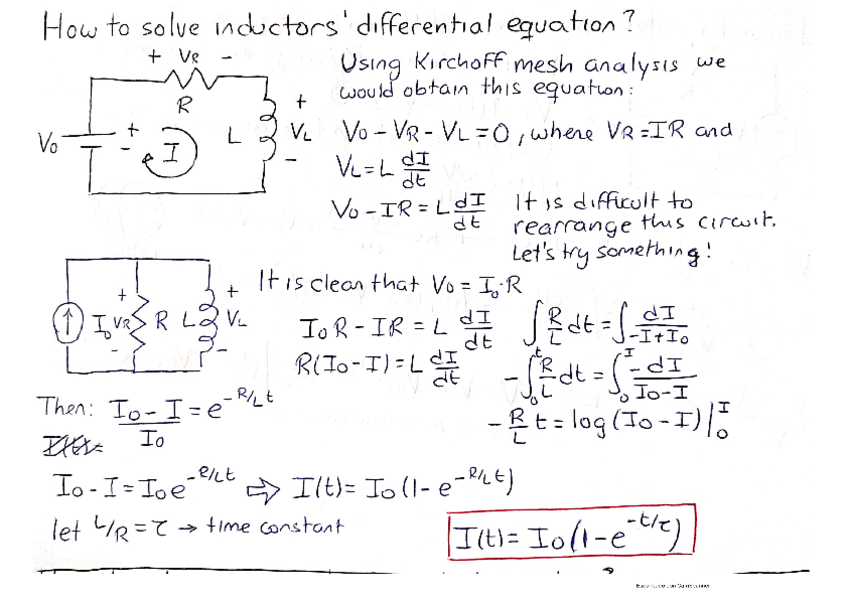 How to solve inductors' differential equation?
+ VR -
R
Vo
+
-
I
L
+
VL
-
Using Kirchoff mesh analysis we
would obtain this equation:
Vo - VR - VL = 0, where VR = IR and
VL = L dI/dt
Vo - IR = L dI/dt
It is difficult to
rearrange this circuit.
Let's try something!
Io
+
VR
-
R
L
+
VL
-
It is clean that Vo = Io·R
IoR - IR = L dI/dt
R(Io - I) = L dI/dt
∫ R/L dt = ∫ dI/(-I + Io)
-∫₀ᵗ R/L dt = ∫₀ᴵ -dI/(Io - I)
-R/L t = log(Io - I)|₀ᴵ
Then: (Io - I)/Io = e^(-R/L t)
Io - I = Io e^(-R/L t) ⇒ I(t) = Io(1 - e^(-R/L t))
let L/R = τ → time constant
I(t) = Io(1 - e^(-t/τ))